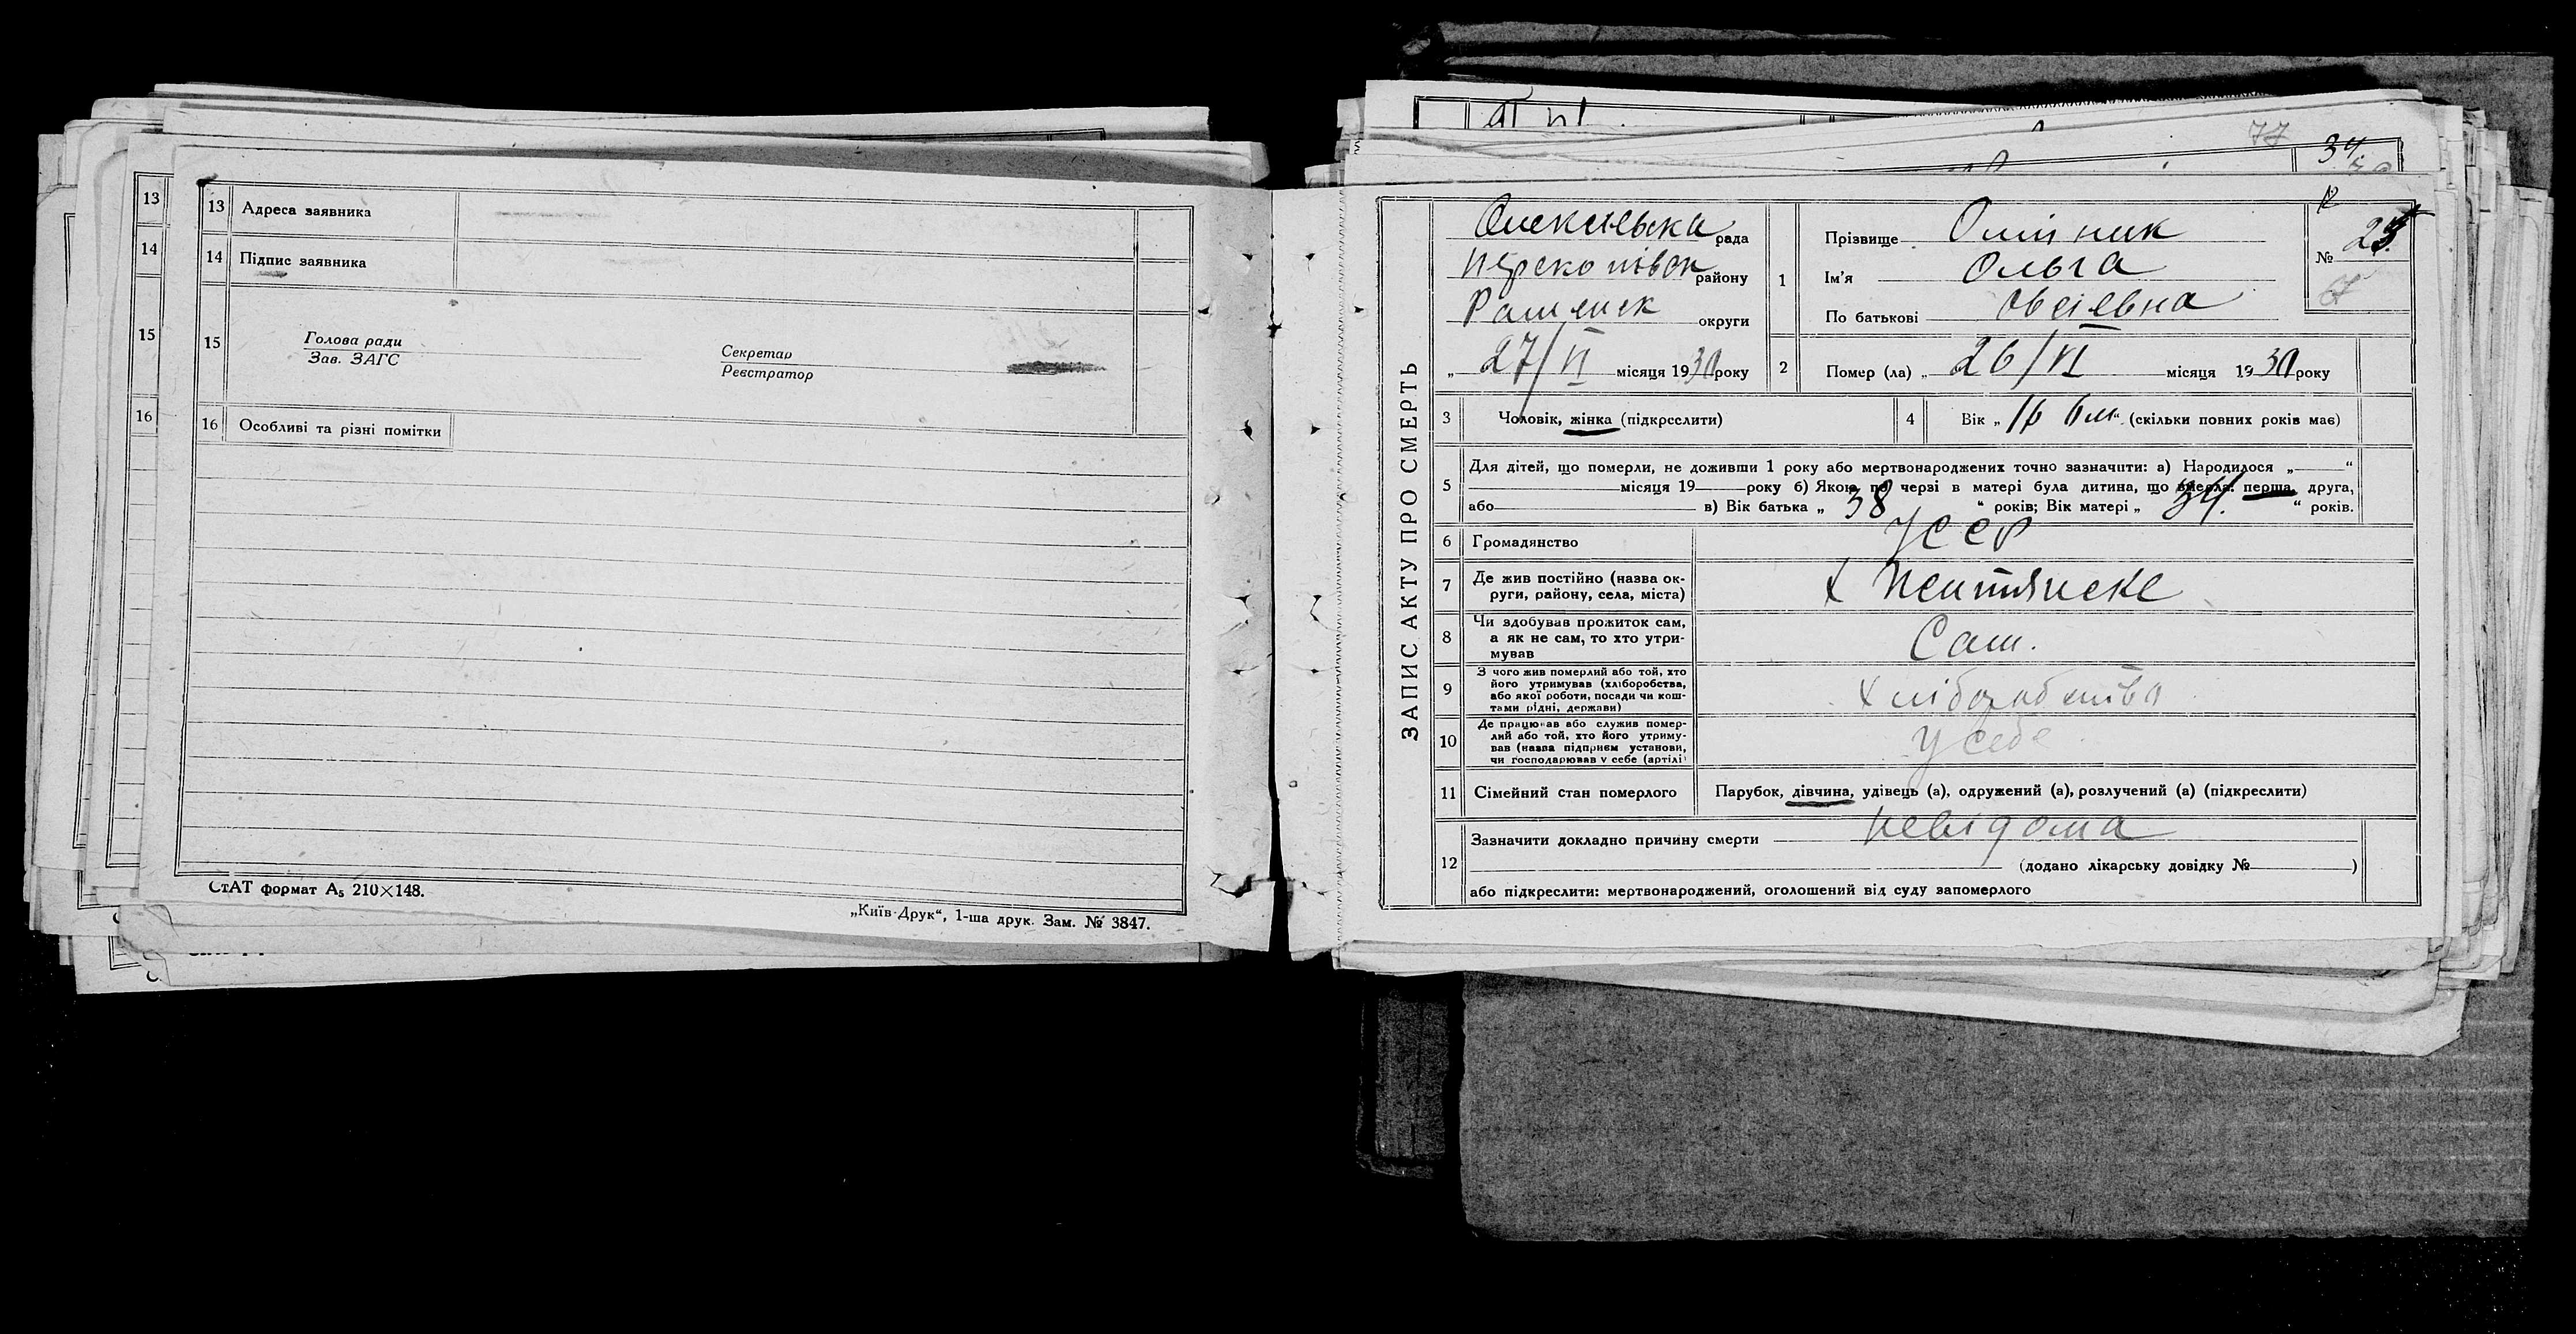 13
14
15
16
13 Адреса заявника
14 Підпис заявника
15 Голова ради
Зав. ЗАГС
Секретар
Реєстратор
16 Особливі та різні помітки
СтАТ формат А₅ 210×148.
„Київ-Друк“, 1-ша друк. Зам. № 3847.
77
34.
ЗАПИС АКТУ ПРО СМЕРТЬ
рада
району
округи
„ 27/VI місяця 1930 року
1 Прізвище Олійник
Ім’я Ольга
По батькові Овсіевна
№
2 Помер (ла) „ 26/VI місяця 1930 року
3 Чоловік, жінка (підкреслити)
4 Вік „ (скільки повних років має)
5 Для дітей, що померли, не доживши 1 року або мертвонароджених точно зазначити: а) Народилося „ “
місяця 19 року б) Якою по черзі в матері була дитина, що вмерла: перша, друга,
або в) Вік батька „ 38 “ років; Вік матері „ 34. “ років.
6 Громадянство УССР
7 Де жив постійно (назва ок-
руги, району, села, міста)
8 Чи здобував прожиток сам,
а як не сам, то хто утри-
мував
Сам.
9 З чого жив померлий або той, хто
його утримував (хліборобства,
або якої роботи, посади чи кош-
тами рідні, держави)
хліборобство
10 Де працював або служив помер-
лий або той, хто його утриму-
вав (назва підприєм установи,
чи господарював у себе (артілі)
у себе
11 Сімейний стан померлого Парубок, дівчина, удівець (а), одружений (а), розлучений (а) (підкреслити)
12 Зазначити докладно причину смерти невідома
(додано лікарську довідку № )
або підкреслити: мертвонароджений, оголошений від суду запомерлого